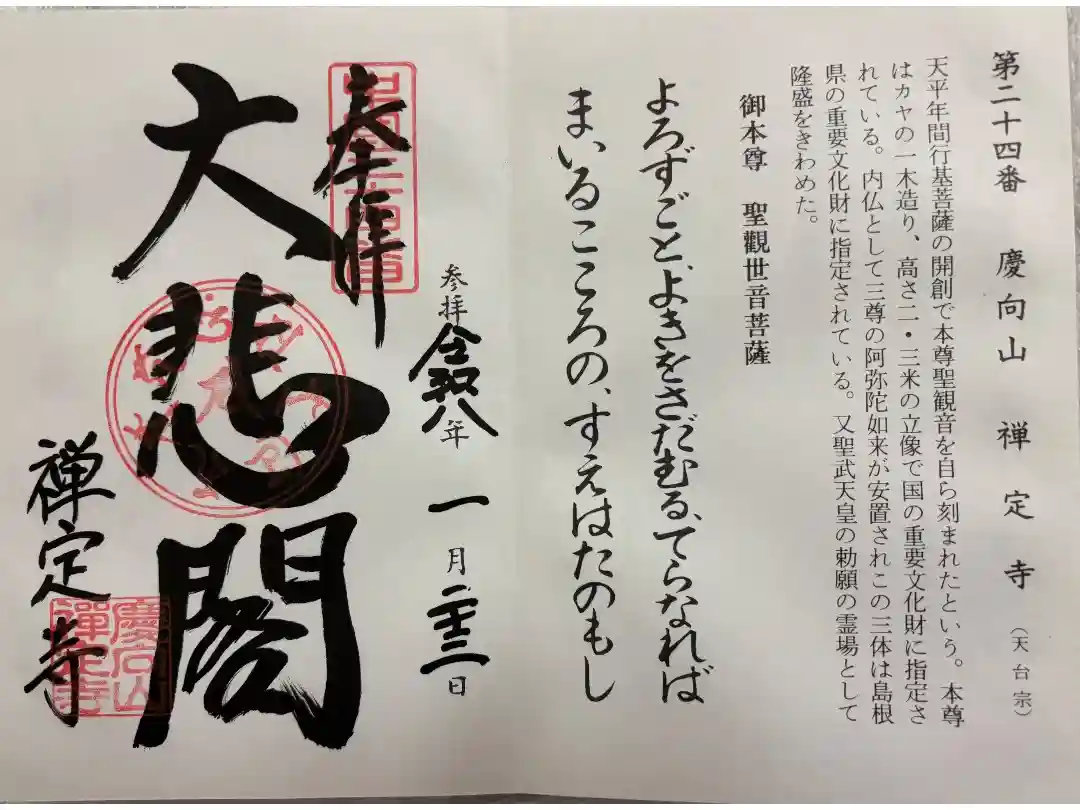 第二十四番 慶向山 禅定寺 (天台宗)
天平年間行基菩薩の開創で本尊聖観音を自ら刻まれたという。本尊
はカヤの一木造り、高さ二・三米の立像で国の重要文化財に指定さ
れている。内仏として三尊の阿弥陀如来が安置されこの三体は島根
県の重要文化財に指定されている。又聖武天皇の勅願の霊場として
隆盛をきわめた。
御本尊 聖觀世音菩薩
よろずごとよきをさだむる、てらなれば
まいるこころの、すえはたのもし
参拝 令和八年 一月二十三日
奉拝
大悲閣
禅定寺
慶向山
禪定寺